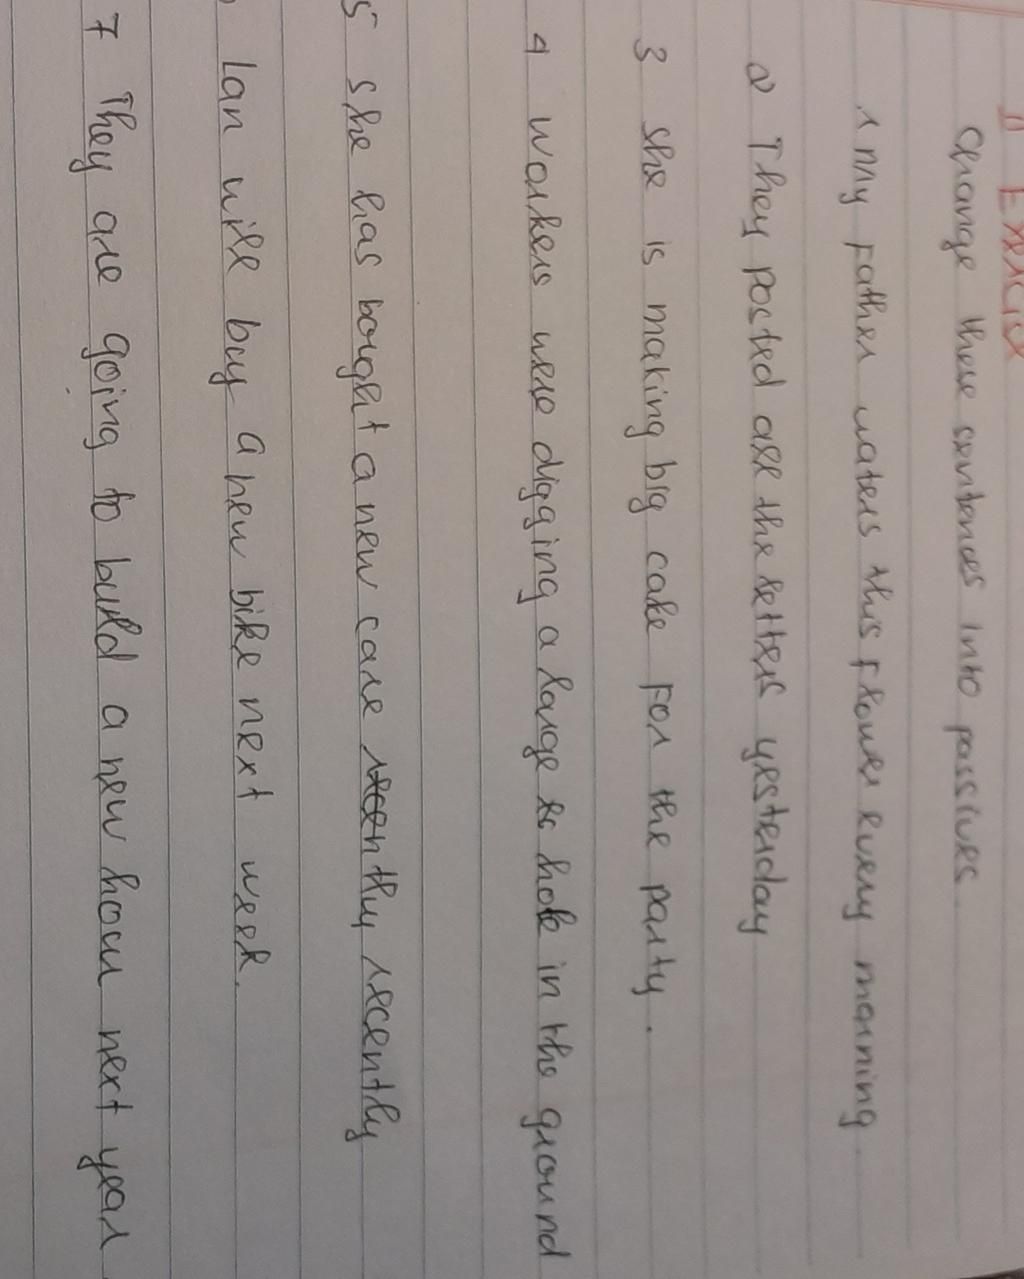 II Exercise
Change these sentences into passives.
1 My father waters this flower every morning.
2 They posted all the letters yesterday
3 she is making big cake For the party.
4 Workers were digging a large hole in the ground
5 she has bought a new care recently
lan will buy a new bike next week.
7 They are going to build a new next year